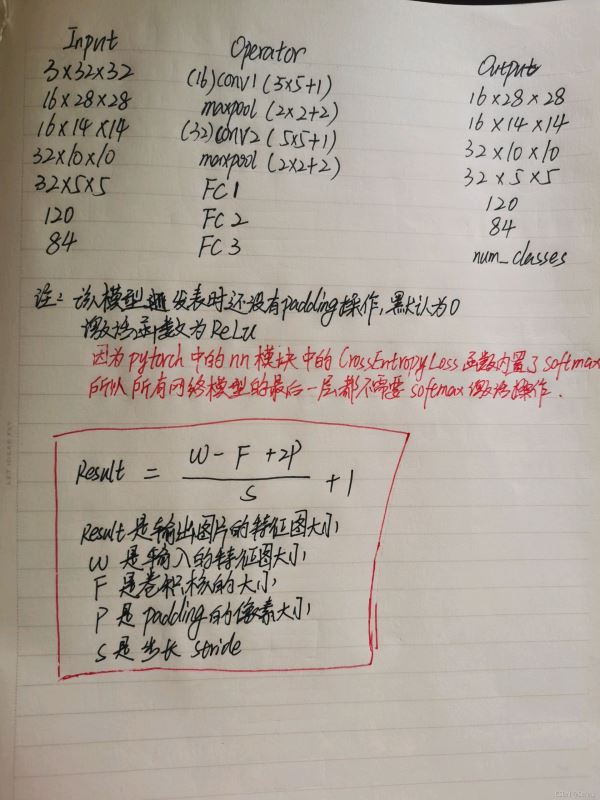 Input Operator Output
3×32×32 (16)conv1(5×5+1) 16×28×28
16×28×28 maxpool(2×2+2) 16×14×14
16×14×14 (32)conv2(5×5+1) 32×10×10
32×10×10 maxpool(2×2+2) 32×5×5
32×5×5 FC1 120
120 FC2 84
84 FC3 num_classes
注：该模型发表时还没有padding操作，默认为0
激活函数为ReLu
因为pytorch中的nn模块中的CrossEntropyLess函数内置了softmax
所以所有网络模型的最后一层都不需要softmax激活操作.
Result = (W-F+2P)/S +1
Result是输出图片的特征图大小
W是输入的特征图大小
F是卷积核的大小
P是padding的像素大小
S是步长stride